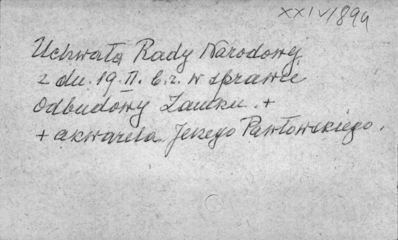 XXIV/894
Uchwała Rady Narodowej
z dn. 19. II. b.r. w sprawie
Odbudowy Zamku. +
+ akwarela Jerzego Pawłowskiego.